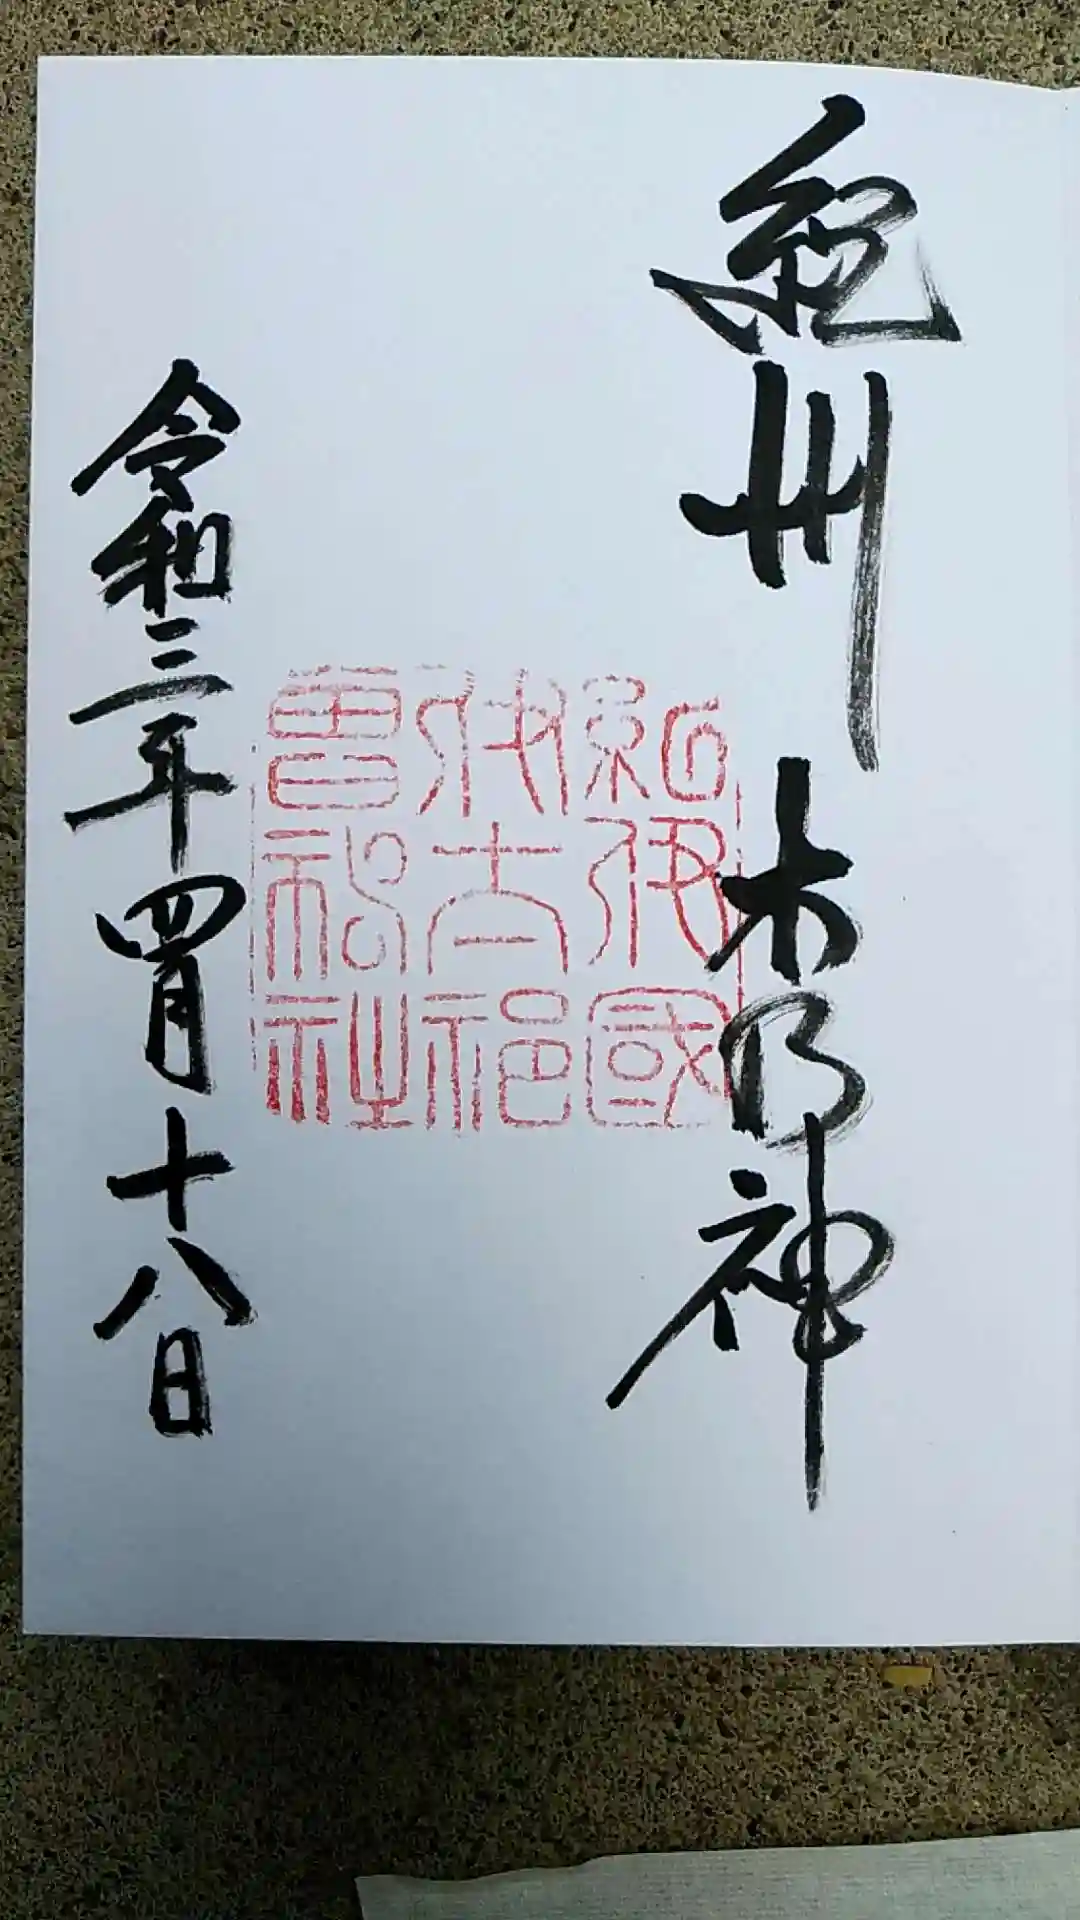 紀州 木乃神
紀伊國
伎人神
曽神社
令和三年四月十八日